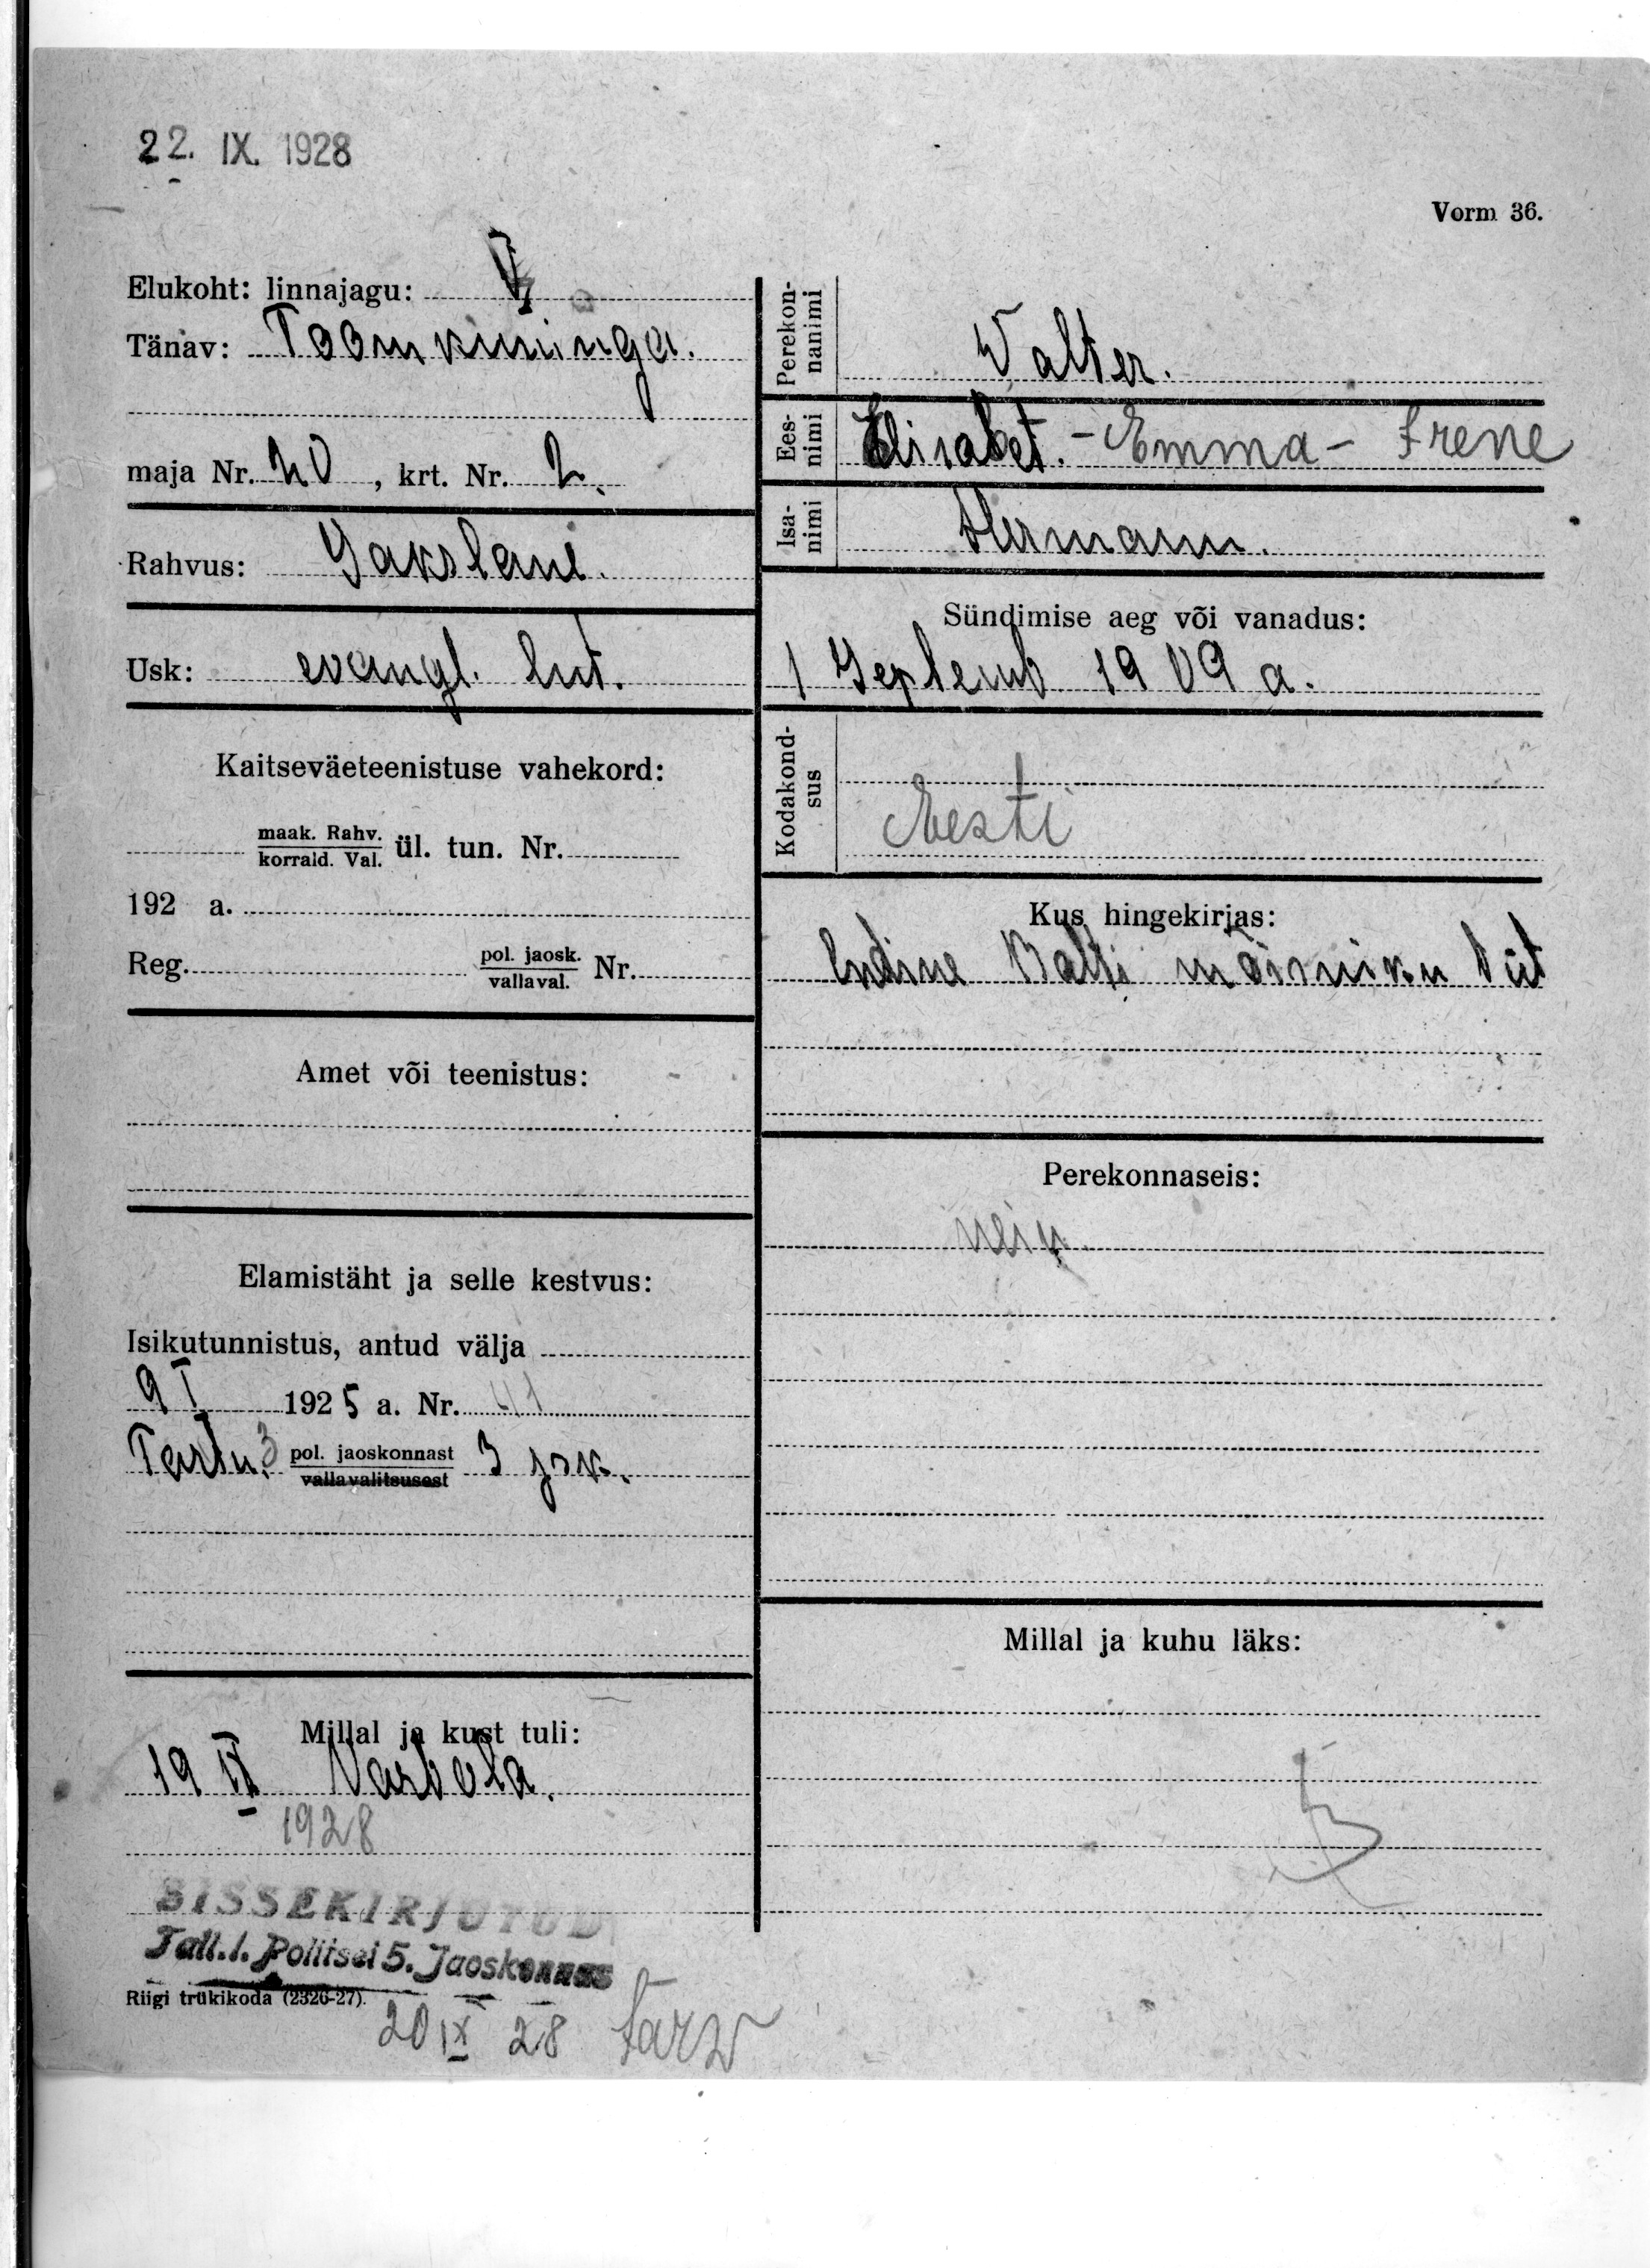 22. IX. 1928
Vorm 36.
Elukoht: linnajagu: V
Tänav: Toomkuninga.
maja Nr. 20, krt. Nr. 2.
Rahvus: Sakslane.
Usk: evangl. lut.
Kaitseväeteenistuse vahekord:
maak. Rahv.
korrald. Val. ül. tun. Nr.
192 a.
Reg. pol. jaosk.
vallaval. Nr.
Amet või teenistus:
Elamistäht ja selle kestvus:
Isikutunnistus, antud välja
9 I 1925 a. Nr. 41
Tartu 3 pol. jaoskonnast 3 jsk.
vallavalitsusest
Millal ja kust tuli:
19 IX
1928
SISSEKIRJUTUD
Tall. l. Politsei 5. Jaoskonnas
Riigi trükikoda (2326-27).
20 IX 28
Perekon-
nanimi
Valter.
Ees-
nimi
Elisabet. - Emma - Irene
Isa-
nimi
Hermann.
Sündimise aeg või vanadus:
1 Septemb 1909 a.
Kodakond-
sus
Eesti
Kus hingekirjas:
Endine Balti mõisniku
Perekonnaseis:
neiu
Millal ja kuhu läks: